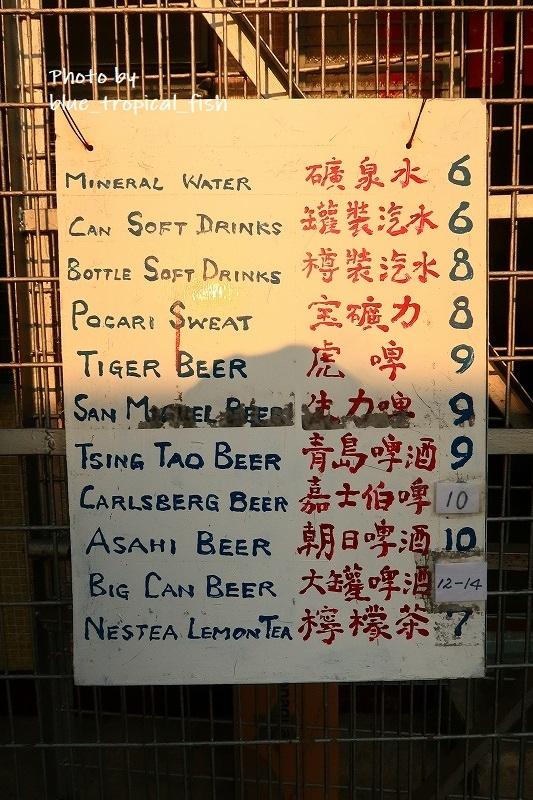 Photo by
blue_tropical_fish
MINERAL WATER 礦泉水 6
CAN SOFT DRINKS 罐裝汽水 6
BOTTLE SOFT DRINKS 樽裝汽水 8
POCARI SWEAT 宝礦力 8
TIGER BEER 虎啤 9
SAN MIGUEL BEER 生力啤 9
TSING TAO BEER 青島啤酒 9
CARLSBERG BEER 嘉士伯啤 10
ASAHI BEER 朝日啤酒 10
BIG CAN BEER 大罐啤酒 12-14
NESTEA LEMON TEA 檸檬茶 7